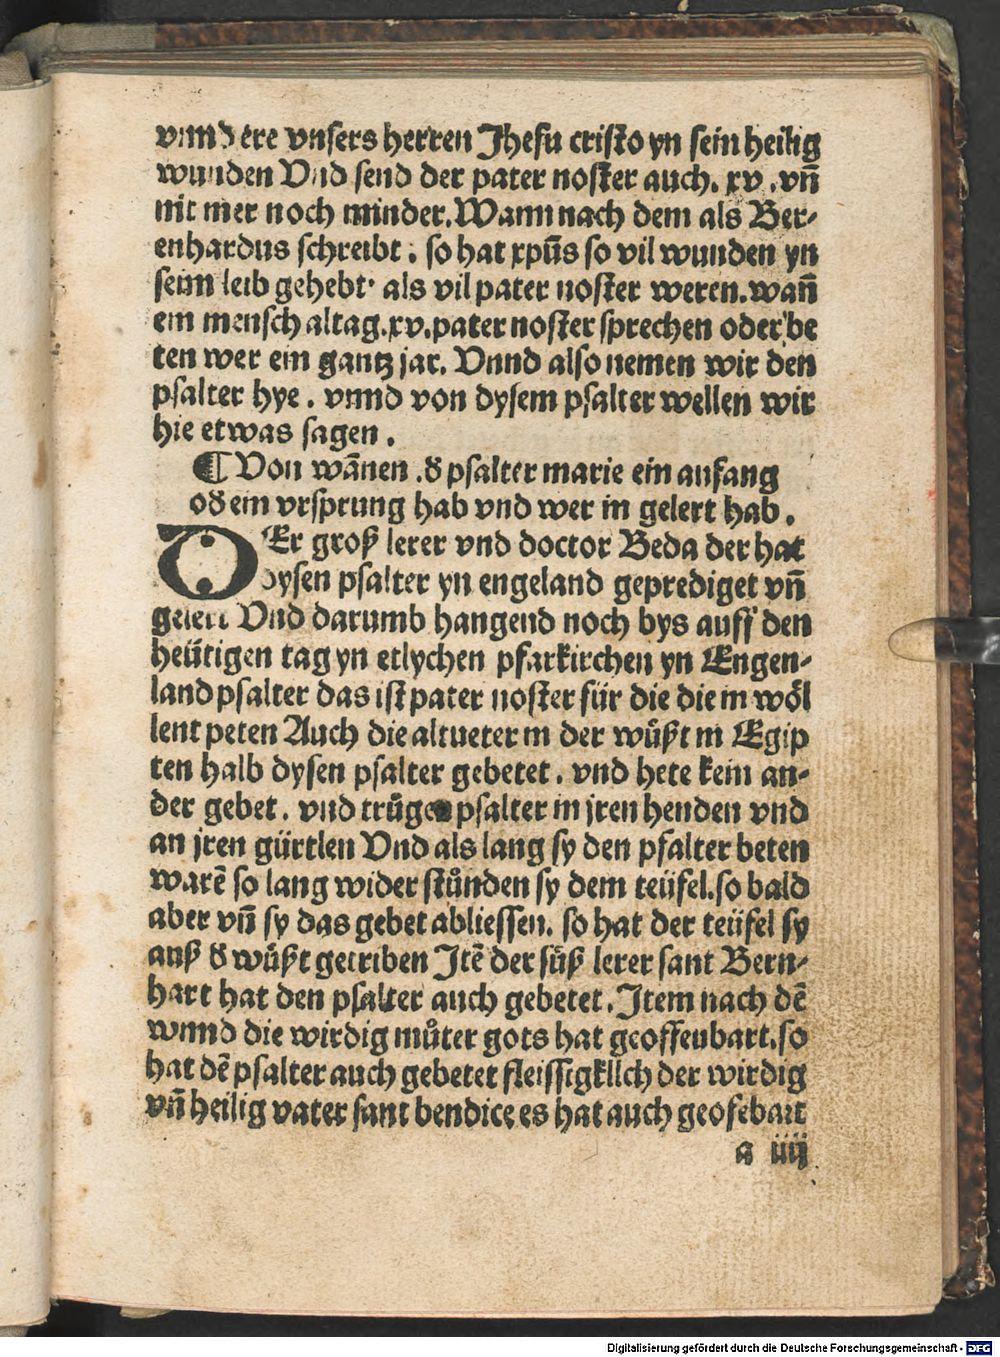 vnnd ere vnsers herren Jhesu cristo yn sein heilig
wunden Vnd send der pater noster auch. xv .vñ
nit mer noch minder. Wann nach dem als Ber-
enhardus schreibt . so hat xpūs so vil wunden yn
seim leib gehebt· als vil pater noster weren. wañ
ein mensch altag .xv. pater noster sprechen oder be
ten wer ein gantz jar. Vnnd also nemen wir den
psalter hye . vnnd von dysem psalter wellen wir
hie etwas sagen .
¶ Von wānen .d̕ psalter marie ein anfang
od̕ ein vrsprung hab vnd wer in gelert hab .
DEr groß lerer vnd doctor Beda der hat
dysen psalter yn engeland geprediget vñ
gelert Vnd darumb hangend noch bys auff den
heütigen tag yn etlychen pfarkirchen yn Engen-
land psalter das ist pater noster für die die in wȫl
lent peten Auch die altueter in der wüßt in Egip
ten halb dysen psalter gebetet . vnd hete kein an-
der gebet . vnd trügen psalter in jren henden vnd
an jren gürtlen Vnd als lang sy den psalter beten
warē so lang wider stůnden sy dem teüfel. so bald
aber vñ sy das gebet abliessen. so hat der teüfel sy
auß d̕ wüßt getriben Jtē der süß lerer sant Bern-
hart hat den psalter auch gebetet . Jtem nach dē
wnnd die wirdig můter gots hat geoffenbart. so
hat dē psalter auch gebetet fleissigklich der wirdig
vñ heilig vater sant bendice es hat auch geofebart
a iiij
Digitalisierung gefördert durch die Deutsche Forschungsgemeinschaft - DFG